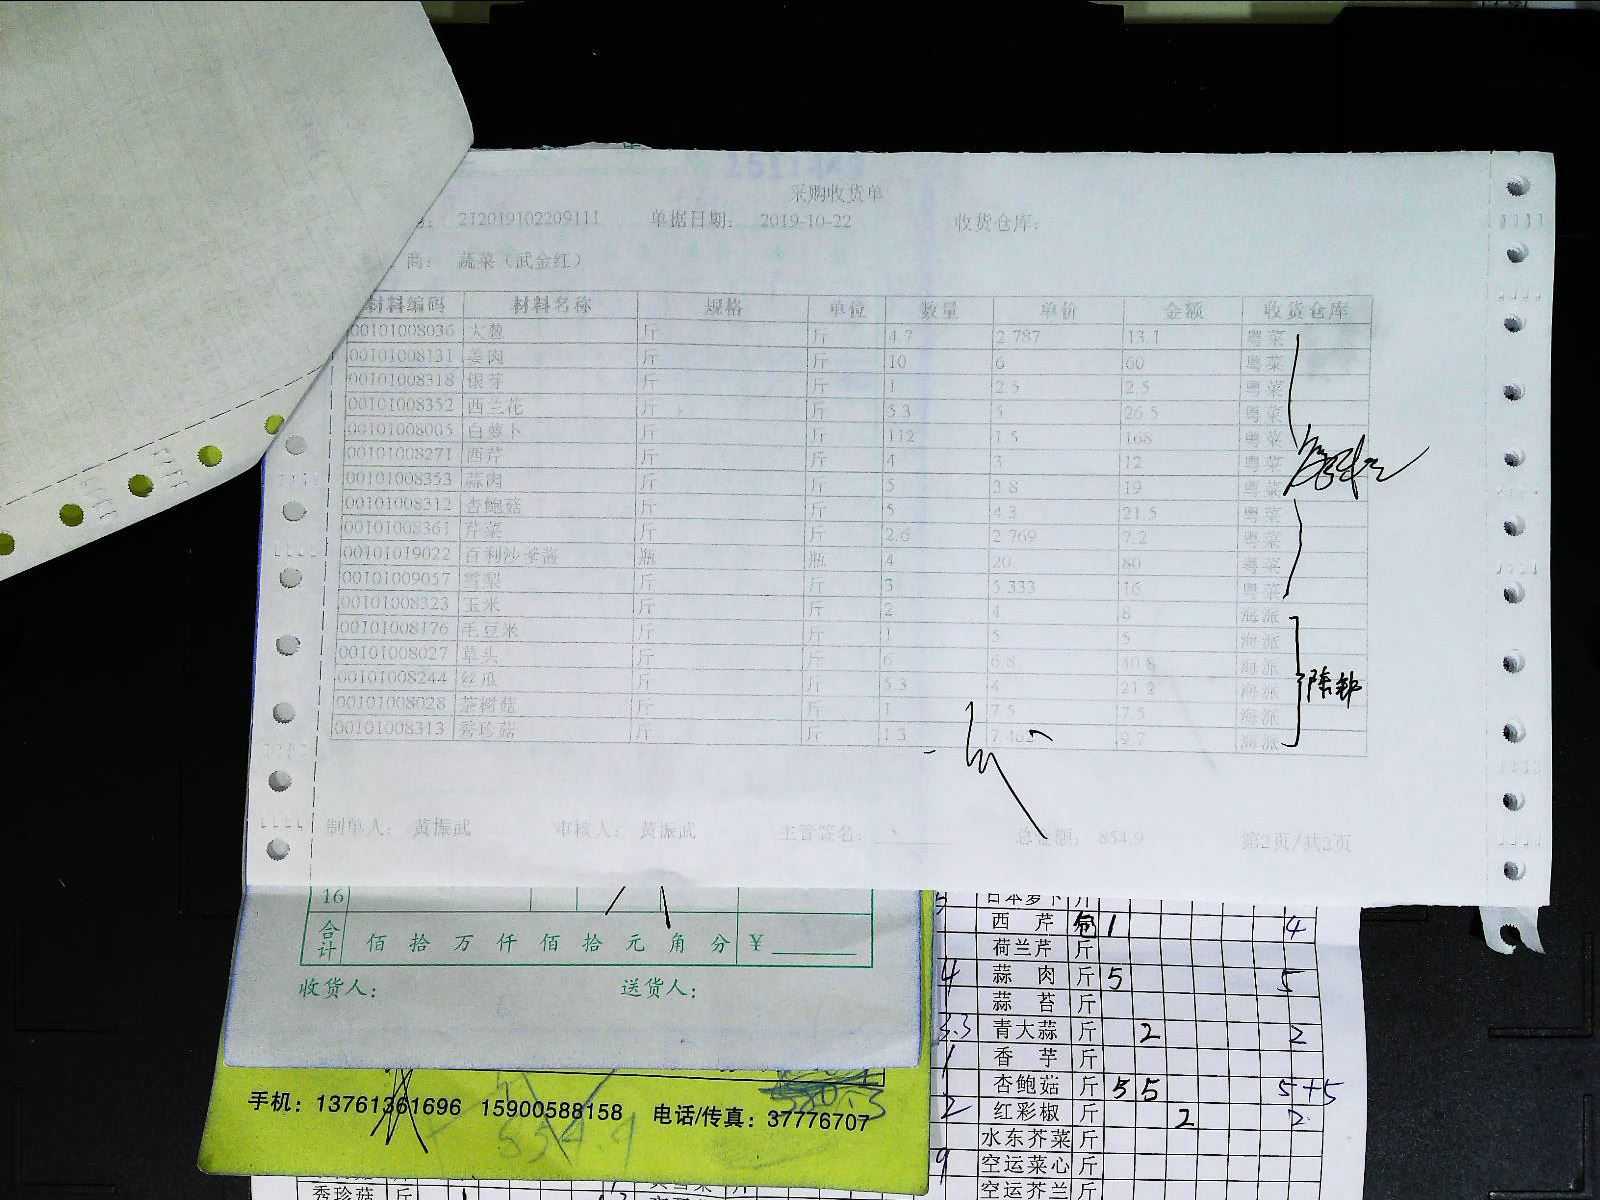 采购收货单
212019102209111 单据日期: 2019-10-22 收货仓库:
商: 蔬菜(武金红)
材料编码 材料名称 规格 单位 数量 单价 金额 收货仓库
00101008036 大葱 斤 斤 4.7 2.787 13.1 粤菜
00101008131 姜肉 斤 斤 10 6 60 粤菜
00101008318 银芽 斤 斤 1 2.5 2.5 粤菜
00101008352 西兰花 斤 斤 5.3 5 26.5 粤菜
00101008005 白萝卜 斤 斤 112 1.5 168 粤菜
00101008271 西芹 斤 斤 4 3 12 粤菜
00101008353 蒜肉 斤 斤 5 3.8 19 粤菜
00101008312 杏鲍菇 斤 斤 5 4.3 21.5 粤菜
00101008361 芹菜 斤 斤 2.6 2.769 7.2 粤菜
00101019022 百利沙爹酱 瓶 瓶 4 20 80 粤菜
00101009057 雪梨 斤 斤 3 5.333 16 粤菜
00101008323 玉米 斤 斤 2 4 8 海派
00101008176 毛豆米 斤 斤 1 5 5 海派
00101008027 草头 斤 斤 6 6.8 40.8 海派
00101008244 丝瓜 斤 斤 5.3 4 21.2 海派
00101008028 茶树菇 斤 斤 1 7.5 7.5 海派
00101008313 秀珍菇 斤 斤 1.3 7.462 9.7 海派
制单人: 黄振武 审核人: 黄振武 主管签名: 总金额: 854.9 第2页/共3页
16
合计 佰 拾 万 仟 佰 拾 元 角 分 ¥
收货人: 送货人:
手机: 13761361696 15900588158 电话/传真: 37776707
854.9
日本萝卜 斤
西芹 包 1 4
荷兰芹 斤
4 蒜肉 斤 5 5
蒜苔 斤
3.3 青大蒜 斤 2 2
1 香芋 斤
杏鲍菇 斤 5 5 5+5
2 红彩椒 斤 2 2
水东芥菜 斤
9 空运菜心 斤
空运芥兰 斤
秀珍菇 斤